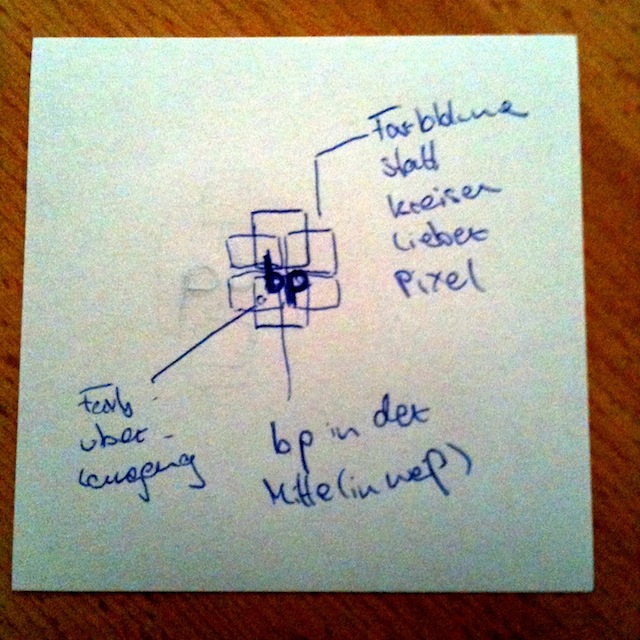 Farbblume
statt
kreisen
lieber
Pixel
bp
Farb-
über-
bp in der
Mitte (in weß)